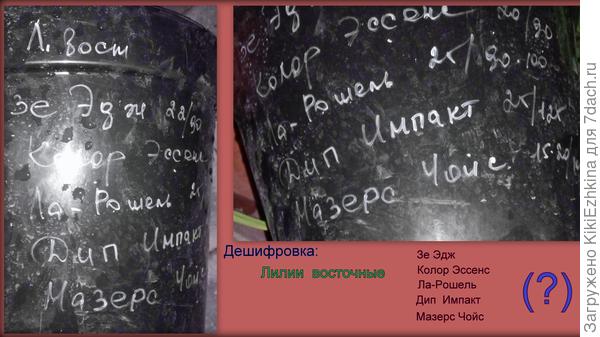 Л. Вост
Зе Эдж 22/90
Колор Эссенс
Ла-Рошель 25
Дип Импакт
Мазерс Чойс
Зе Эдж
Колор Эссенс 20/90
Ла-Рошель 25/90-100
Дип Импакт 25/125
Мазерс Чойс 15-20/
Дешифровка:
Лилии восточные
Зе Эдж
Колор Эссенс
Ла-Рошель
Дип Импакт
Мазерс Чойс
(?)
Загружено KikiEzhkina для 7dach.ru